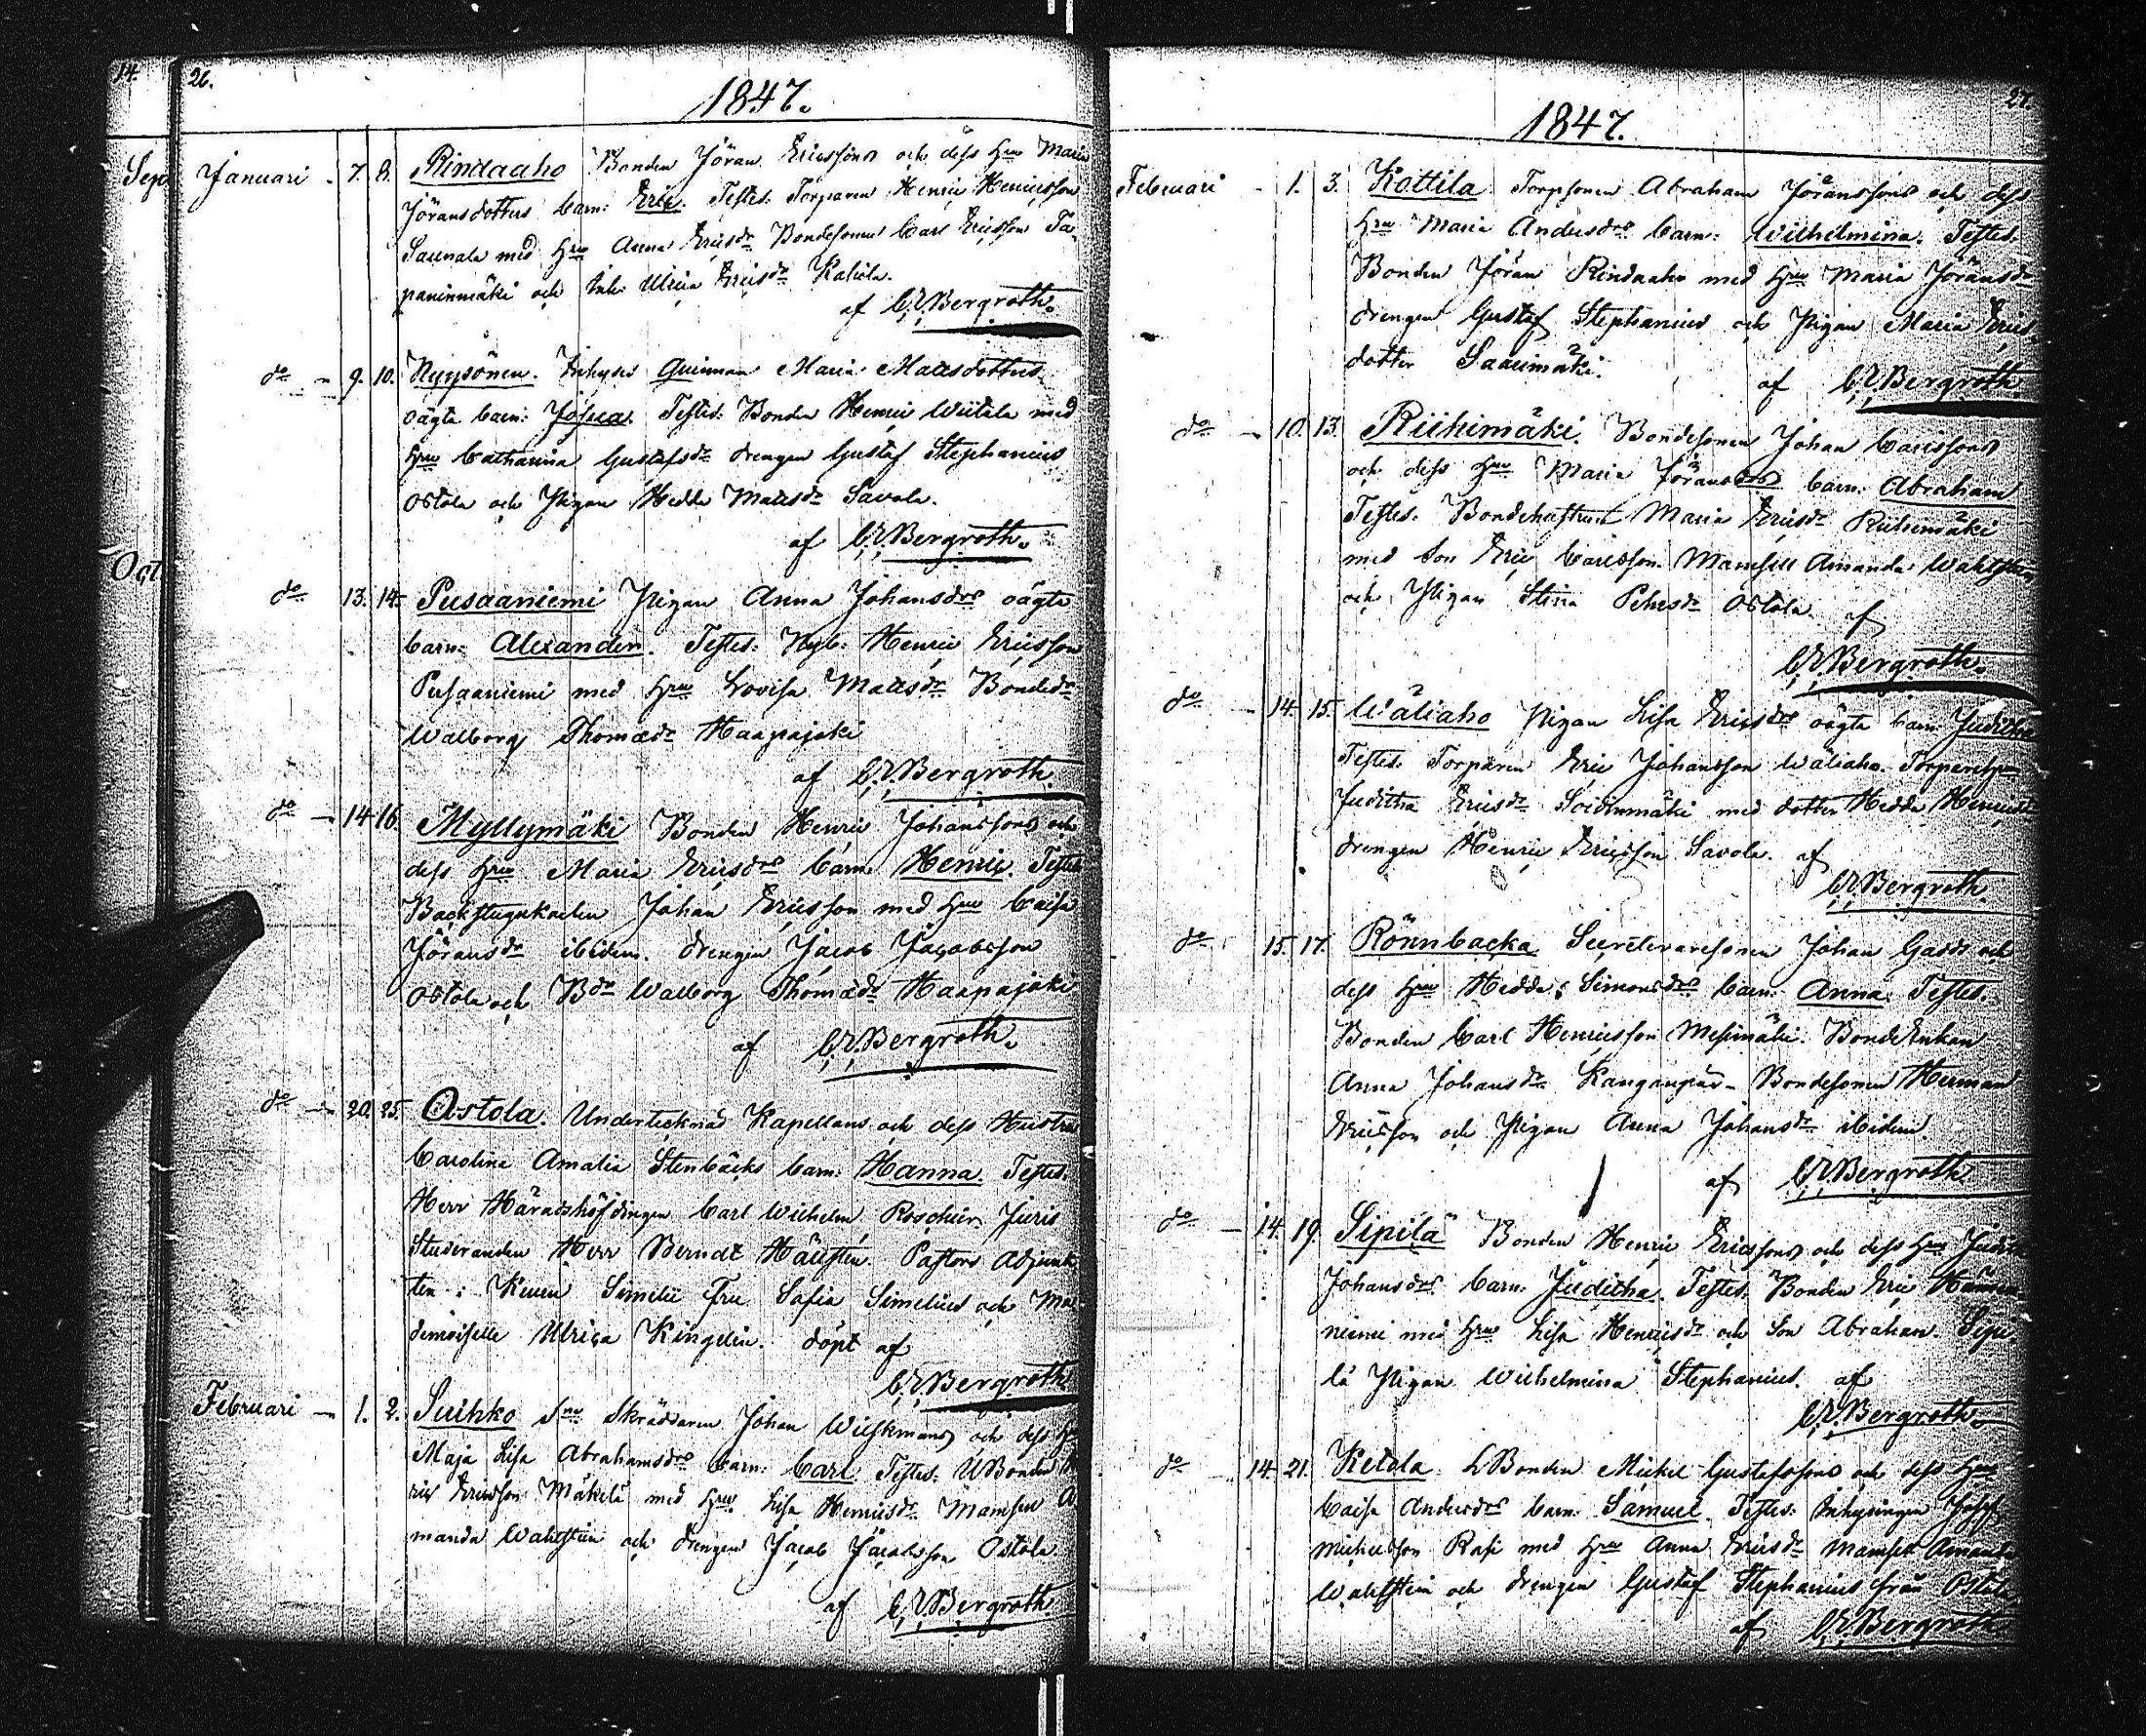 14.
26.
1847.
Sep
Januari - 7. 8. Rindaaho Bonden Jöran Ericssons och dess Hru Maria
Jöransdotters barn: Eric. Testes: Torparen Henric Henricsson
Saunala med Hru Anna Ericsdr Bondesonen Carl Ericsson Ta-
paninmäki och Enk: Ulrica Ericsdr Kaliola.
af C.E.Bergroth.
do - 9. 10. Nyysönen. Inhyses Quinnan Maria Mattsdotters
oägta barn: Josua. Testes: Bonden Henric Wiitala med
Hru Catharina Gustafsdr drengen Gustaf Stephanius
Ostola och Pigan Hedda Mattsdr Savola.
af C.E.Bergroth.
Oct
do 13. 14. Pusaaniemi Pigan Anna Johansdrs oägta
barn: Alexander. Testes: Nyb: Henric Ericsson
Pusaaniemi med Hru Lovisa Mattsdr Bondedr
Walborg Thomædr Haapajoki
af C.E.Bergroth
do - 14 16. Myllymäki Bonden Henric Johanssons och
dess Hru Maria Ericsdrs barn: Henric. Testes
Backstugukarlen Johan Ericsson med Hru Caisa
Jöransdr ibidem. drengen Jacob Jacobsson
Ostola och Bdr Walborg Thomædr Haapajoki
af C.E.Bergroth.
do - 20. 25. Ostola. Undertecknad Kapellans och dess Hustrus
Carolina Amalia Stenbäcks barn: Hanna. Testes:
Herr Häradshöfdingen Carl Wilhelm Roschier, Juris
Studeranden Herr Berndt Hällsten. Pastors Adjunk-
ten: Simelii Fru Sofia Simelius och Ma-
demoiselle Ulrica Kingelin. döpt af
C.E.Bergroth
Februari - 1. 2. Suihko Snr Skräddaren Johan Wickmans och dess Hru
Maja Lisa Abrahamsdrs barn: Carl. Testes: UBonden
ric Ericsson Mäkelä med Hru Lisa Henricsdr. Mamsell A
manda Wahlstein och drengen Jacob Jacobsson Ostola.
af C.E.Bergroth.
27.
1847.
Februari - 1. 3. Kottila Torpsonen Abraham Jöranssons och dess
Hru Maria Andersdrs barn: Wilhelmina. Testes:
Bonden Jöran Rindaaho med Hru Maria Jöransdr
drengen Gustaf Stephanius och Pigan Maria Erics-
dotter Saarimäki.
af C.E.Bergroth
do - 10. 13. Riihimäki. Bondesonen Johan Carlssons
och dess Hru Maria Jöransdrs barn: Abraham
Testes: Bondehustrun Maria Ericsdr Riihimäki
med Son Eric Carlsson. Mamsell Amanda Wahlstein
och Pigan Stina Pehrsdr Ostola. af
C.E.Bergroth.
do - 14. 15. Wäliaho Pigan Lisa Ericsdrs oägta barn Juditha
Testes: Torparen Eric Johansson Wäliaho. Torparehu
Juditha Ericsdr Soidinmäki med dotter Hedda Henricsdr
drengen Henric Ericsson Savola. af
C.E.Bergroth.
do 15. 17. Rönnbacka Johan Gads och
dess Hru Hedda Simonsdrs barn: Anna. Testes:
Bonden Carl Henricsson Mesimäki. BondeEnkan
Anna Johansdr Kanganpää - Bondesonen Herman
Ericsson och Pigan Anna Johansdr ibidem.
af C.E.Bergroth
do - 14. 19. Sipilä Bonden Henric Ericssons och dess Hru Judith
Johansdrs barn: Juditha. Testes: Bonden Eric
niemi med Hru Lisa Henricsdr och Son Abraham. Sipi-
lä Pigan Wilhelmina Stephanius. af
C.E.Bergroth.
do - 14. 21. Ketola. LBonden Mickel Gustafssons och dess Hru
Caisa Andersdrs barn: Samuel. Testes: Inhysingen Josef
Michelsson Rasi med Hru Anna Ericsdr Mamsell Amanda
Wahlstein och drengen Gustaf Stephanius från Ostola,
af C.E.Bergroth